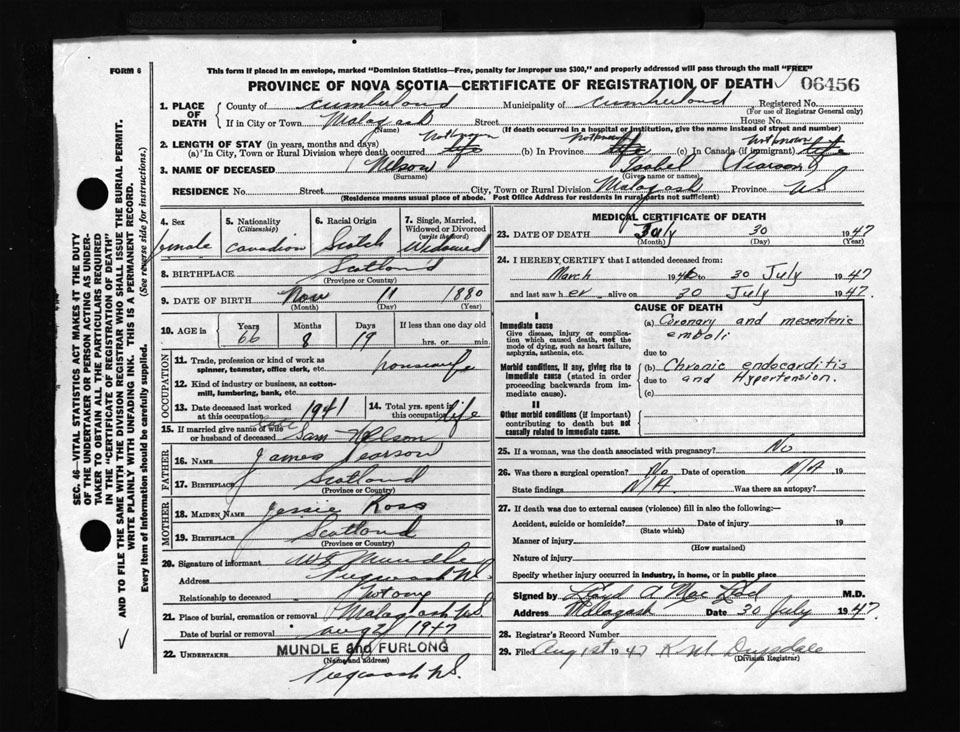 FORM 6
This form if placed in an envelope, marked "Dominion Statistics—Free, penalty for improper use $300," and properly addressed will pass through the mail "FREE"
PROVINCE OF NOVA SCOTIA—CERTIFICATE OF REGISTRATION OF DEATH 06456
1. PLACE OF DEATH
County of Cumberland Municipality of Cumberland Registered No.
(For use of Registrar General only)
If in City or Town Malagash Street House No.
(Name) (If death occurred in a hospital or institution, give the name instead of street and number)
2. LENGTH OF STAY (in years, months and days)
not known not known not known
(a) In City, Town or Rural Division where death occurred life (b) In Province life (c) In Canada (if immigrant) life
3. NAME OF DECEASED Wilson Isabel Pearson
(Surname) (Given name or names)
RESIDENCE No. Street City, Town or Rural Division Malagash Province NS
(Residence means usual place of abode. Post Office Address for residents in rural parts not sufficient)
4. Sex female
5. Nationality (Citizenship) Canadian
6. Racial Origin Scotch
7. Single, Married, Widowed or Divorced (write the word) Widowed
8. BIRTHPLACE Scotland
(Province or Country)
9. DATE OF BIRTH Nov 11 1880
(Month) (Day) (Year)
10. AGE in Years Months Days If less than one day old
66 8 19 hrs. or min.
OCCUPATION
11. Trade, profession or kind of work as spinner, teamster, office clerk, etc. housewife
12. Kind of industry or business, as cotton-mill, lumbering, bank, etc.
13. Date deceased last worked at this occupation 1941
14. Total yrs. spent in this occupation life
15. If married give name of wife or husband of deceased Sam Wilson
FATHER
16. NAME James Pearson
17. BIRTHPLACE Scotland
(Province or Country)
MOTHER
18. MAIDEN NAME Jessie Ross
19. BIRTHPLACE Scotland
(Province or Country)
20. Signature of informant Mundle
Address Pugwash NS.
Relationship to deceased not any
21. Place of burial, cremation or removal Malagash NS
Date of burial or removal Aug 2 1947
22. UNDERTAKER MUNDLE and FURLONG
(Name and address)
Pugwash NS.
MEDICAL CERTIFICATE OF DEATH
23. DATE OF DEATH July 30 1947
(Month) (Day) (Year)
24. I HEREBY CERTIFY that I attended deceased from:
March 1946 to 30 July 1947
and last saw her alive on 30 July 1947.
CAUSE OF DEATH
I
Immediate cause
Give disease, injury or complication which caused death, not the mode of dying, such as heart failure, asphyxia, asthenia, etc.
(a) Coronary and mesenteric emboli
due to
Morbid conditions, if any, giving rise to immediate cause (stated in order proceeding backwards from immediate cause).
(b) Chronic endocarditis
due to and Hypertension.
(c)
II
Other morbid conditions (if important) contributing to death but not causally related to immediate cause.
25. If a woman, was the death associated with pregnancy? No
26. Was there a surgical operation? No Date of operation N/A 19
State findings N/A. Was there an autopsy?
27. If death was due to external causes (violence) fill in also the following:—
Accident, suicide or homicide? Date of injury 19
(State which)
Manner of injury
(How sustained)
Nature of injury
Specify whether injury occurred in industry, in home, or in public place
Signed by A. Mac M.D.
Address Malagash Date 30 July 1947
28. Registrar's Record Number
29. Filed Aug 1st 1947 K. M. Drysdale
(Division Registrar)
SEC. 46—VITAL STATISTICS ACT MAKES IT THE DUTY
OF THE UNDERTAKER OR PERSON ACTING AS UNDER-
TAKER TO OBTAIN ALL THE PARTICULARS REQUIRED
IN THE "CERTIFICATE OF REGISTRATION OF DEATH"
AND TO FILE THE SAME WITH THE DIVISION REGISTRAR WHO SHALL ISSUE THE BURIAL PERMIT.
WRITE PLAINLY WITH UNFADING INK. THIS IS A PERMANENT RECORD.
Every item of information should be carefully supplied. (See reverse side for instructions.)